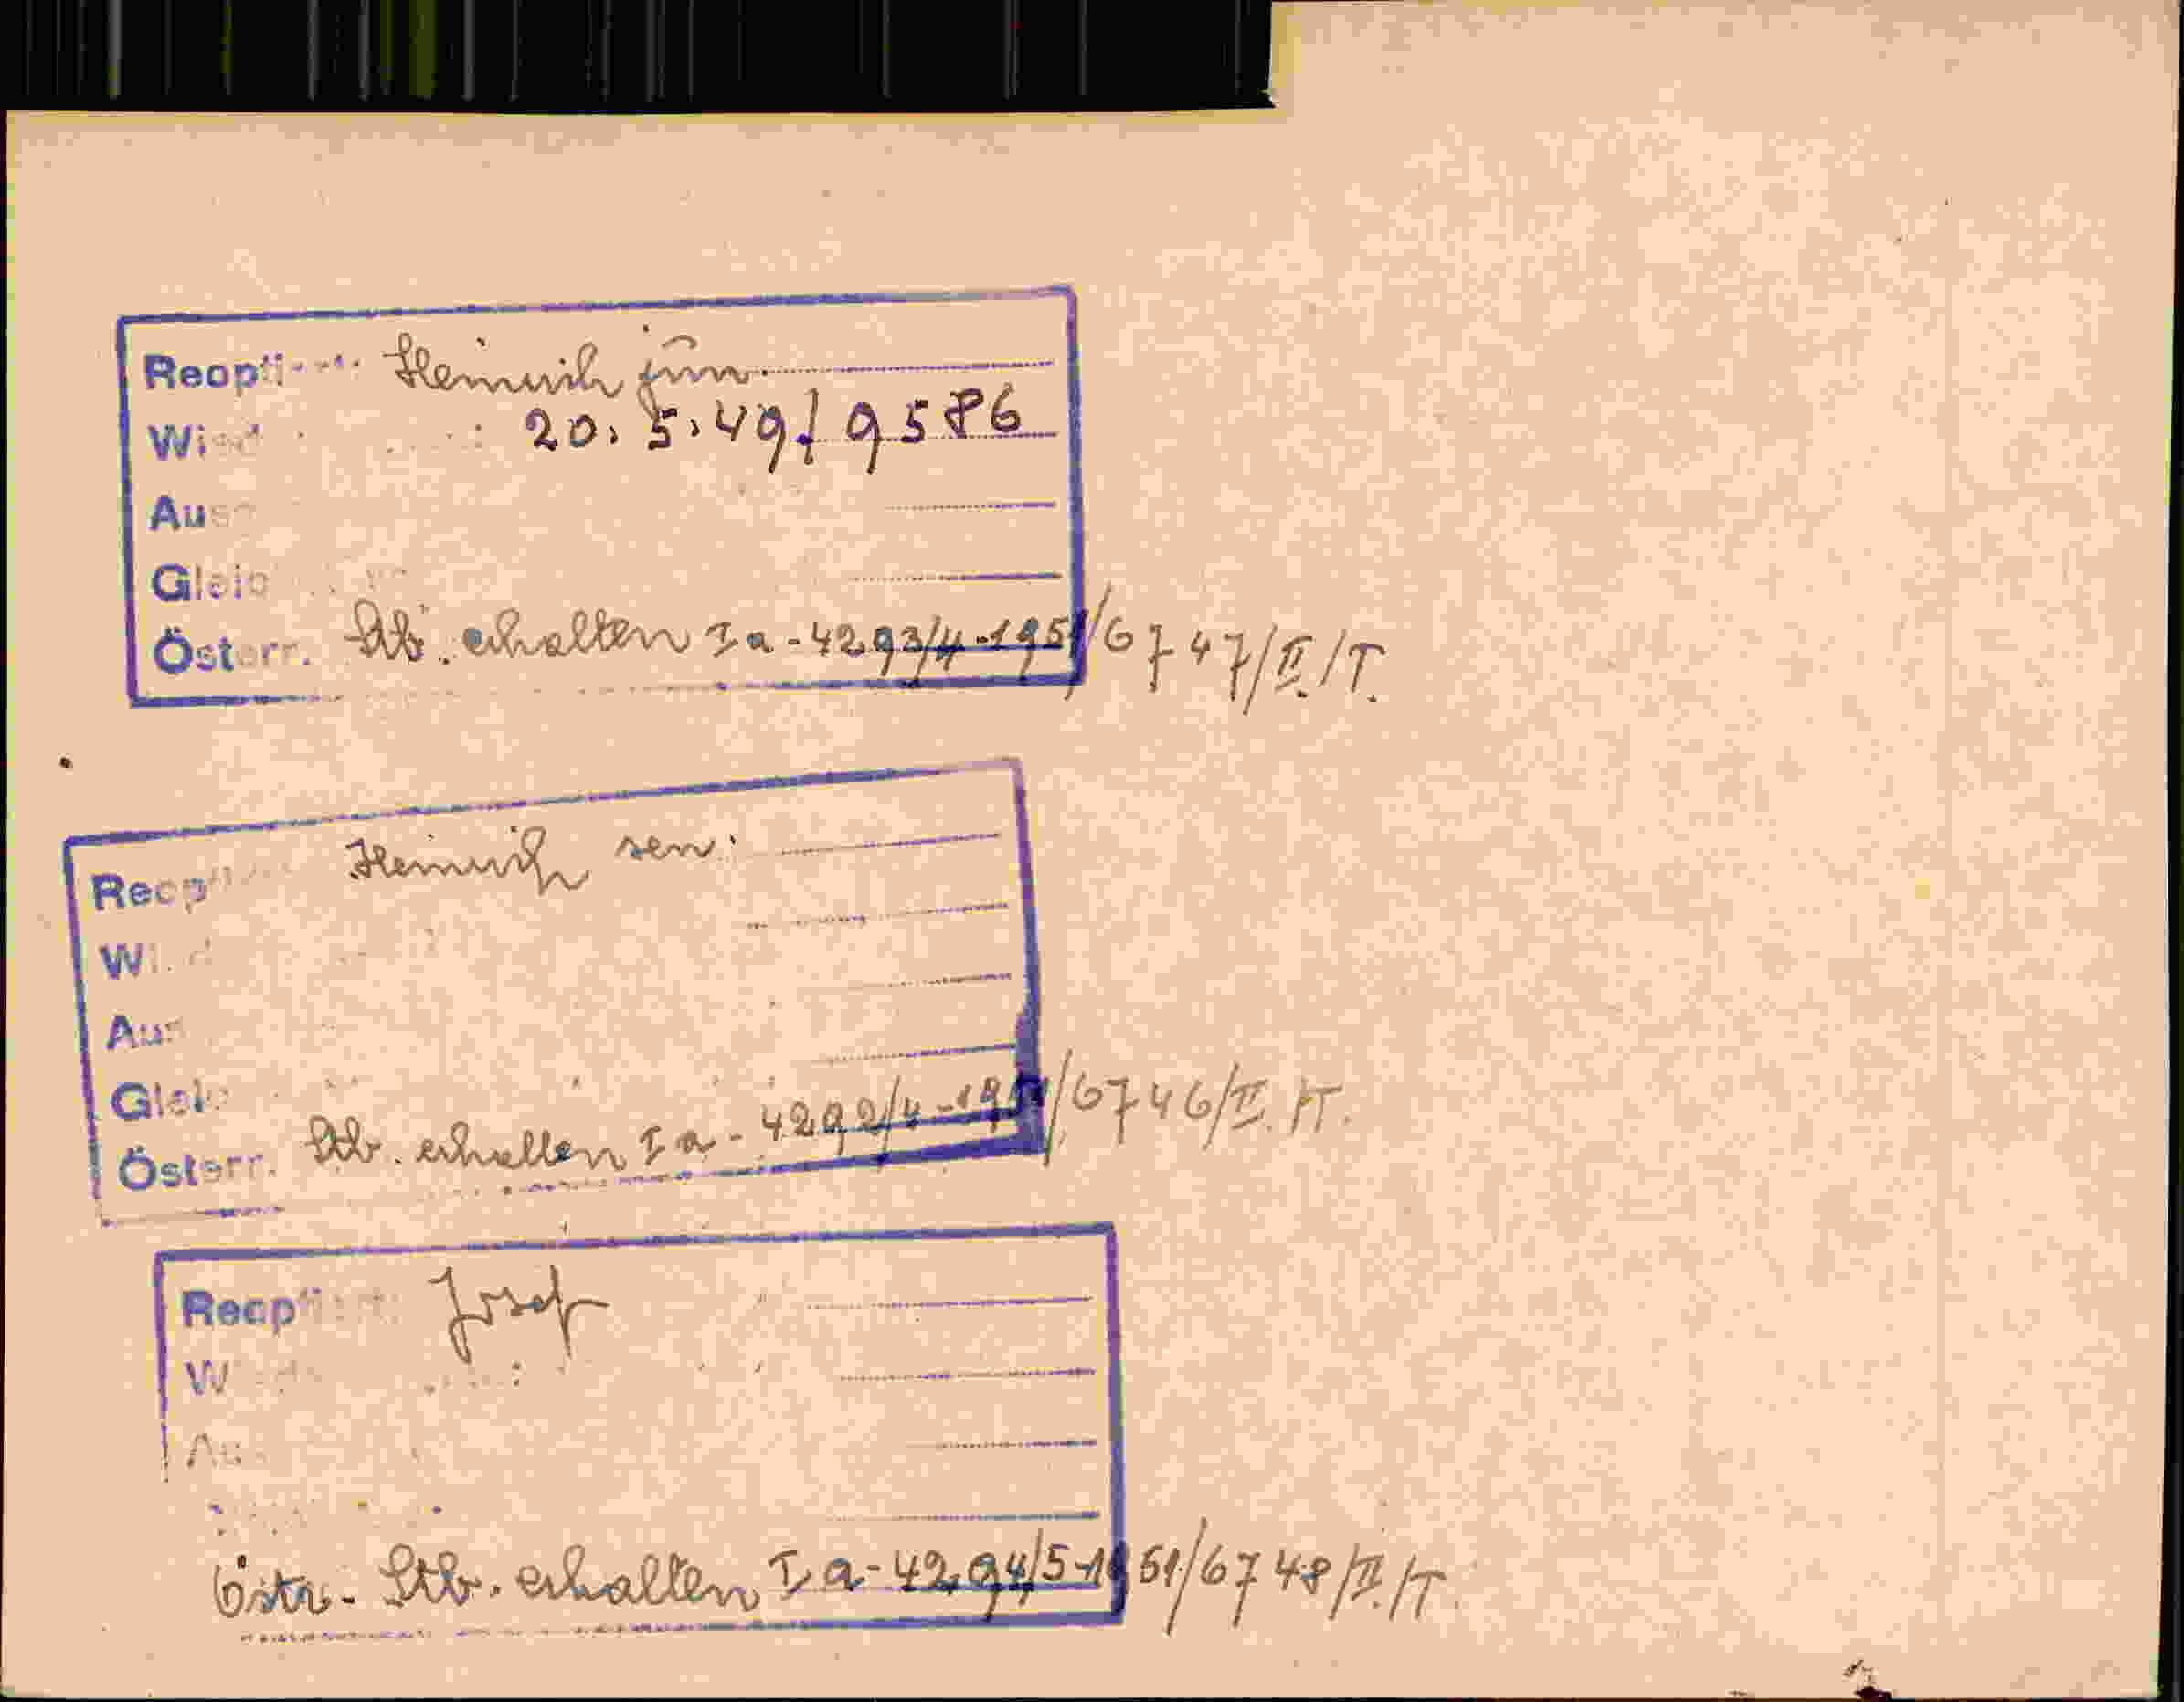 Reopti Heinrich jun.
Wied : 20.5.49/9586
Aus
Gleic
Österr. Stb. erhalten Ia-4293/4-1951/6747/II./T.
Reopti Heinrich sen.
Wied
Aus
Gleic
Österr. Stb. erhalten Ia-4292/4-1951/6746/II./T.
Reoptiert Josef
W
Au
Östr. Stb. erhalten Ia-4294/5-1951/6748/II./T.